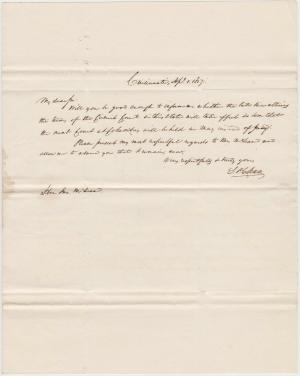 Cincinnati, Apl. 1. 1847.
My dear Sir
Will you be good enough to inform me whether the late law altering
the terms of the Circuit Court in this State will take effect so soon that
the next Court at Columbus will be held in May instead of July.
Please present my most respectful regards to Mrs. McLean and
allow me to assure you that I remain now
Very respectfully & truly yours
S P Chase
Hon. Jno. McLean